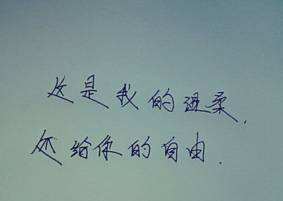 这是我的温柔,
还给你的自由.